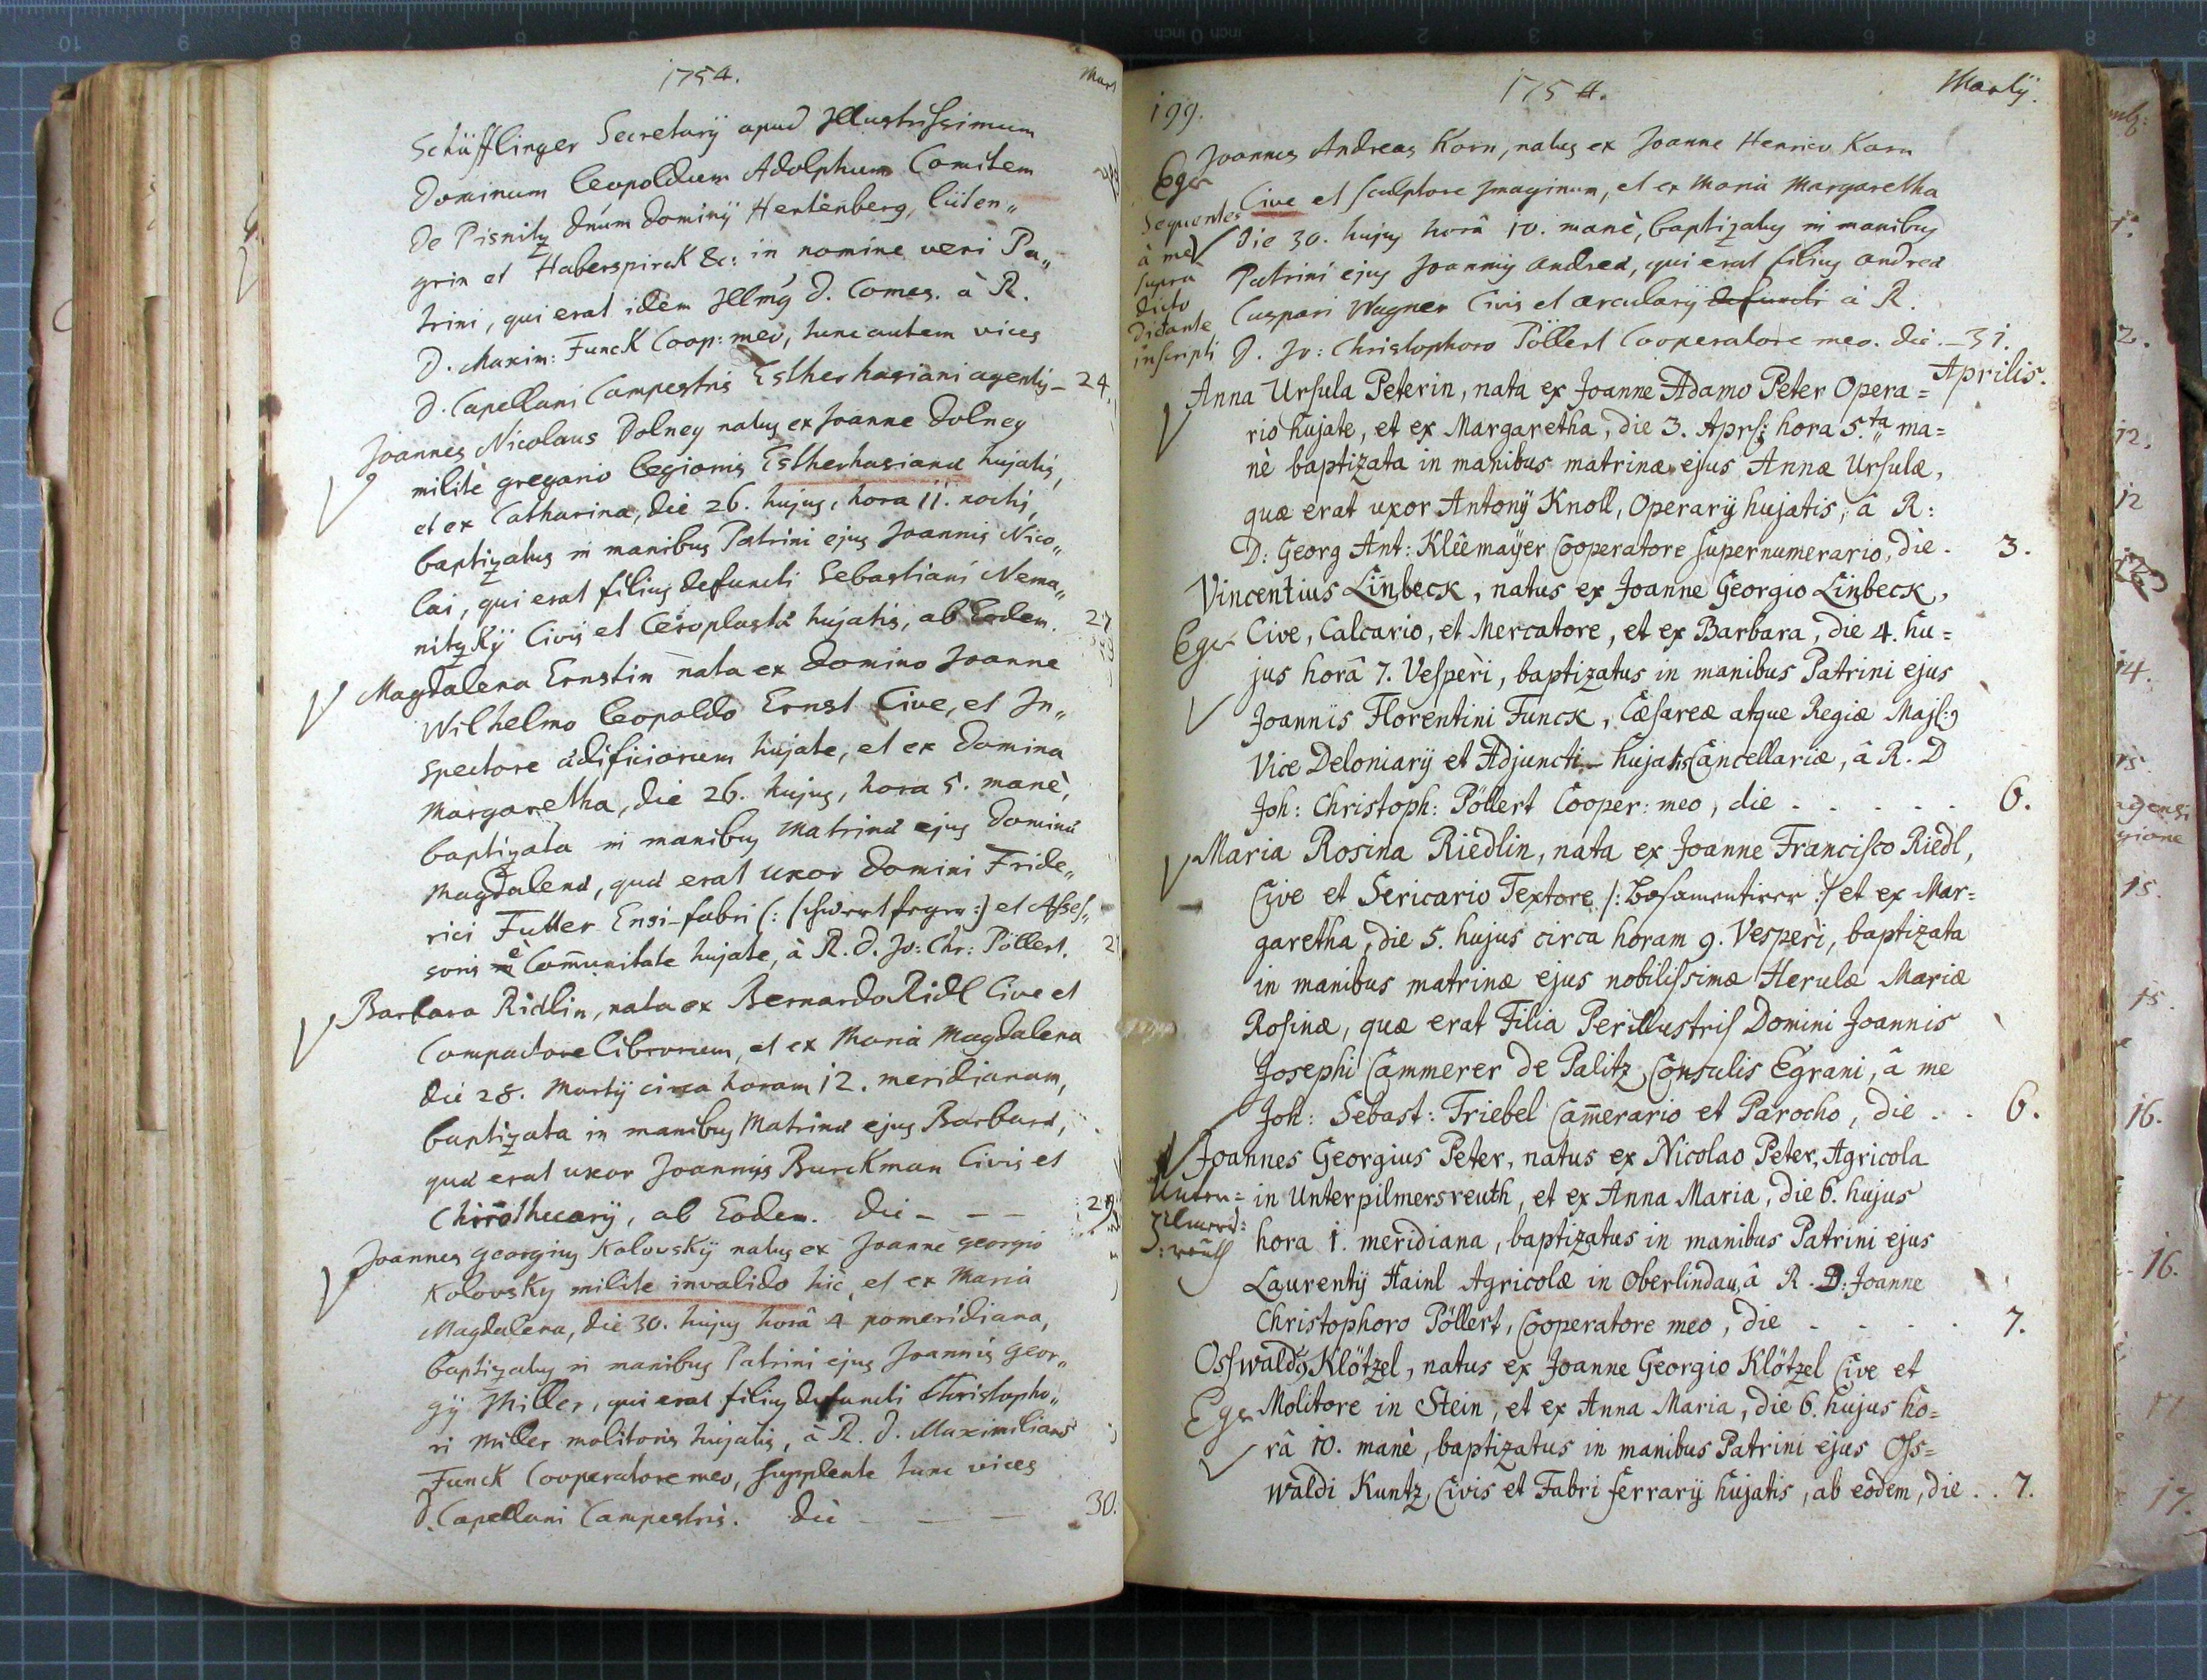 1754.
Mart
Schüfflinger Secretarÿ apud Illustrissimum
Dominum Leopoldum Adolphum Comitem
de Pisnitz Dnum Dominÿ Hertenberg, Lüten„
grin et Haberspirck &c: in nomine veri Pa„
trini, qui erat idem Illmg D. Comes. à R.
D. Maxim: Funck Coop: meo, tunc autem vices
D. Capellani Campestris Estherhasiani agentis – 24.
Joannes Nicolaus Dolney natus ex Joanne Dolney
milite gregario legionis Estherhasianæ hujatis,
et ex Catharina, die 26. hujus, hora 11. noctis,
baptizatus in manibus Patrini ejus Joannis Nico„
lai, qui erat filius defuncti Sebastiani Nema„
nitzkÿ Civis et Ceroplastæ hujatis, ab Eodem. 27
Magdalena Ernstin nata ex Domino Joanne
Wilhelmo Leopoldo Ernst Cive, et In„
spectore ædificiorum hujate, et ex Domina
Margaretha, die 26. hujus, hora 5. manè,
baptizata in manibus Matrinæ ejus Dominæ
Magdalenæ, quæ erat uxor Domini Fride„
rici Futter Ensi-fabri (: Schwertfeger :) et Asses„
soris è Com̄unitate hujate, à R. D. Jo: Chr: Pöllert. 2
Barbara Ridlin, nata ex Bernardo Ridl Cive et
Compactore Librorum, et ex Maria Magdalena
die 28. Martÿ circa horam 12. meridianam,
baptizata in manibus Matrinæ ejus Barbaræ,
quæ erat uxor Joannis Burckman Civis et
Chirothecarÿ, ab Eodem. Die – – – 29
Joannes Georgius Kolovskÿ natus ex Joanne Georgio
Kolovsky milite invalido hic, et ex Maria
Magdalena, die 30. hujus horâ 4 pomeridiana,
baptizatus in manibus Patrini ejus Joannis Geor„
gÿ Miller, qui erat filius defuncti Christopho„
ri Miller molitoris hujatis, à R. D. Maximiliano
Funck Cooperatore meo, supplente tunc vices
D. Capellani Campestris. Die – – – 30.
199.
1754.
Martÿ.
Joannes Andreas Korn, natus ex Joanne Henrico Korn
Eger
Cive et sculptore Imaginum, et ex Maria Margaretha
Sequentes
à me
supra
dicto
dictante
inscripti
die 30. hujus horâ 10. manè, baptizatus in manibus
Patrini ejus Joannis Andreæ, qui erat filius Andreæ
Caspari Wagner Civis et arcularÿ defuncti à R.
D. Jo: Christophoro Pöllert Cooperatore meo. die. – 31.
Aprilis.
Anna Ursula Peterin, nata ex Joanne Adamo Peter Opera=
rio hujate, et ex Margaretha, die 3. Aprs: hora 5.ta ma=
nè baptizata in manibus matrinæ ejus Annæ Ursulæ,
quæ erat uxor Antonÿ Knoll, Operarÿ hujatis, â R:
D: Georg Ant: Kleemaÿer Cooperatore supernumerario, die. 3.
Vincentius Linbeck, natus ex Joanne Georgio Linbeck,
Eger
Cive, Calcario, et Mercatore, et ex Barbara, die 4. hu=
jus horâ 7. Vesperi, baptizatus in manibus Patrini ejus
Joannis Florentini Funck, Cæsareæ atque Regiæ Majs:
Vice Deloniarÿ et Adjuncti – hujatis Cancellariæ, â R. D
Joh: Christoph: Pöllert Cooper: meo, die . . . . . 6.
Maria Rosina Riedlin, nata ex Joanne Francisco Riedl,
Cive et Sericario Textore /: Bosamentirer :/ et ex Mar=
garetha, die 5. hujus circa horam 9. Vesperi, baptizata
in manibus matrinæ ejus nobilissimæ Herulæ Mariæ
Rosinæ, quæ erat Filia Perillustris Domini Joannis
Josephi Cammerer de Palitz, Consulis Egrani, â me
Joh: Sebast: Triebel Cam̄erario et Parocho, die . . 6.
Joannes Georgius Peter, natus ex Nicolao Peter, Agricola
Unter=
in Unterpilmersreuth, et ex Anna Maria, die 6. hujus
hora 1. meridiana, baptizatus in manibus Patrini ejus
Laurentÿ Hainl Agricolæ in Oberlindau, â R. D: Joanne
Christophoro Pöllert, Cooperatore meo, die . . . . 7.
Osswald9 Klötzel, natus ex Joanne Georgio Klötzel Cive et
Eger
Molitore in Stein, et ex Anna Maria, die 6. hujus ho=
râ 10. manè, baptizatus in manibus Patrini ejus Oss=
waldi Kuntz, Civis et Fabri ferrarÿ hujatis, ab eodem, die . . 7.